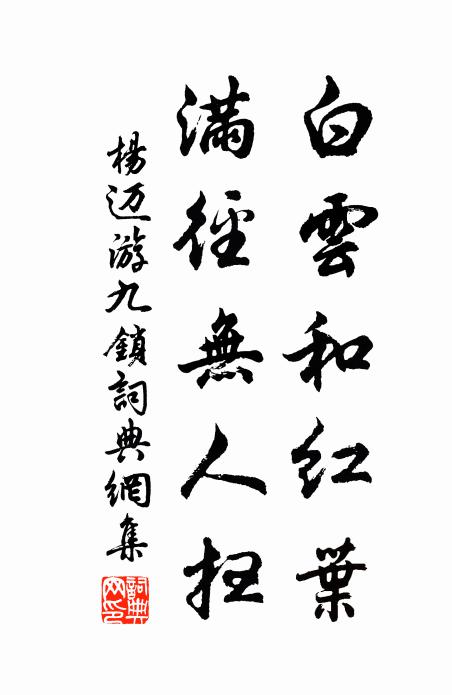 白雲和紅葉
滿徑無人扫
楊迈游九鎖詞典網集
詞典
网印